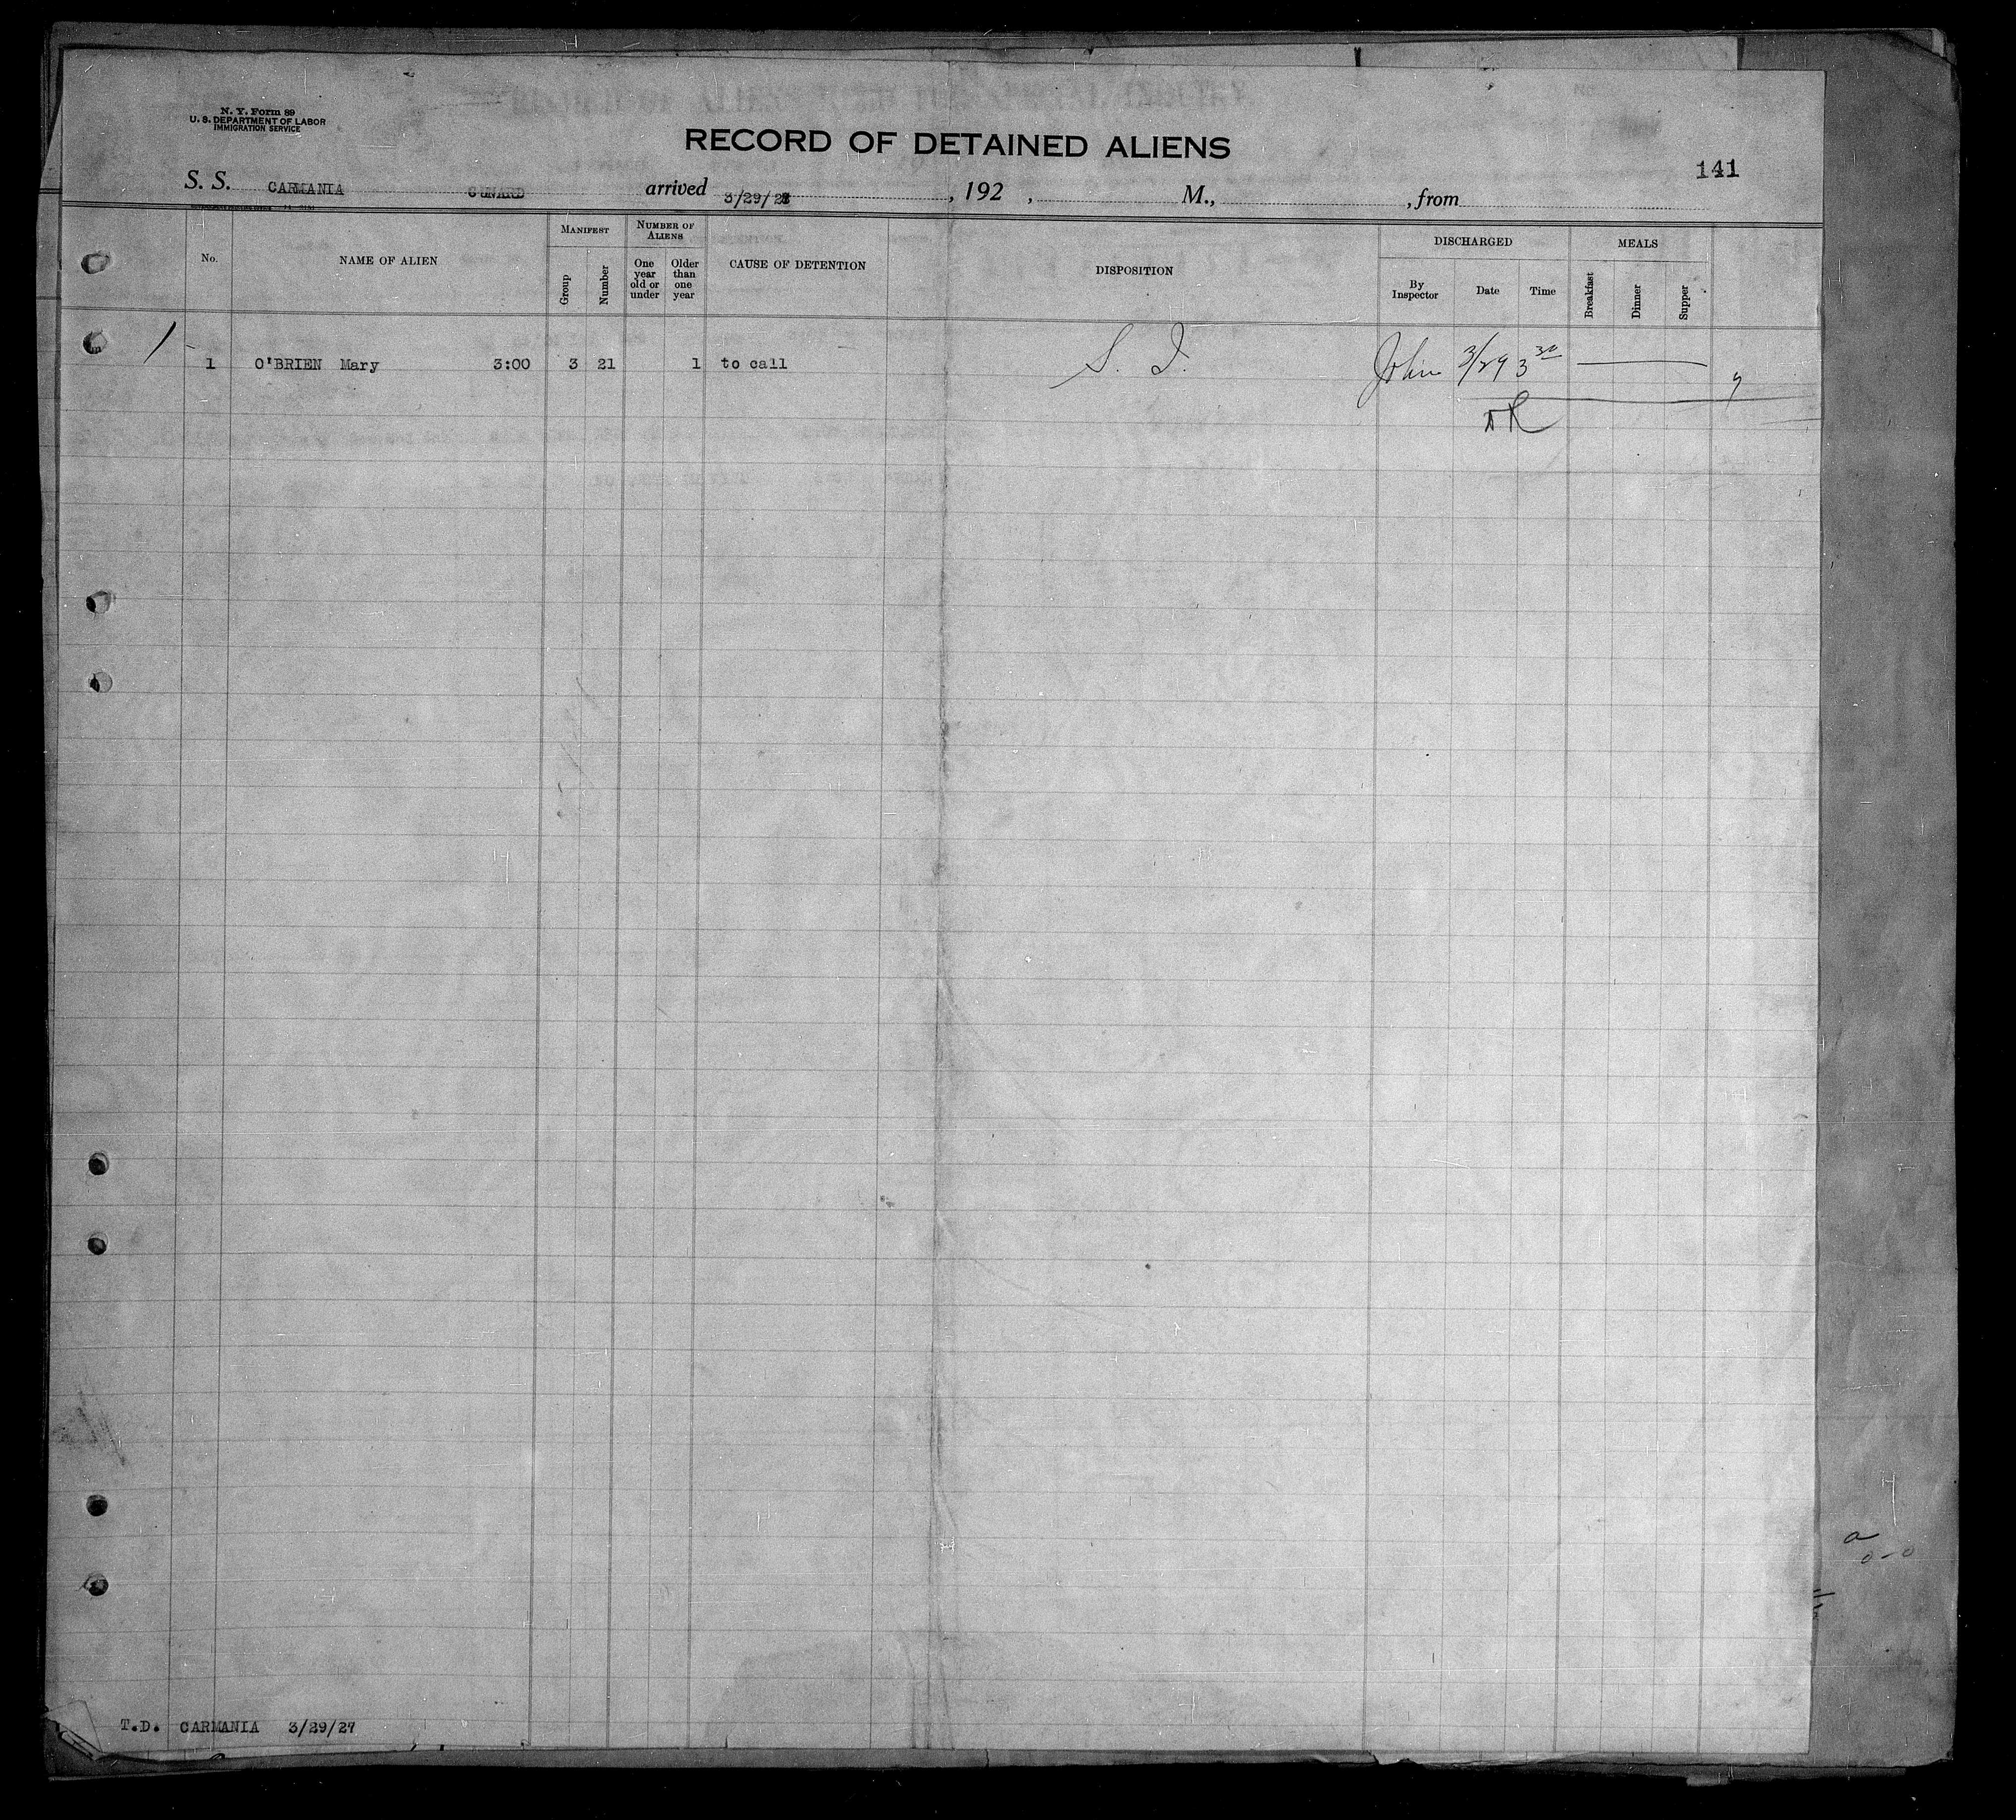 N. Y. Form 89
U. S. DEPARTMENT OF LABOR
IMMIGRATION SERVICE
RECORD OF DETAINED ALIENS
141
S. S. CARMANIA CUNARD arrived 3/29/2 , 192 , M., , from
No.
NAME OF ALIEN
MANIFEST
Group
Number
NUMBER OF ALIENS
One year old or under
Older than one year
CAUSE OF DETENTION
DISPOSITION
DISCHARGED
By Inspector
Date
Time
MEALS
Breakfast
Dinner
Supper
1 O'BRIEN Mary 3:00 3 21 1 to call S. I. John 3/29 3 30
T.D. CARMANIA 3/29/27